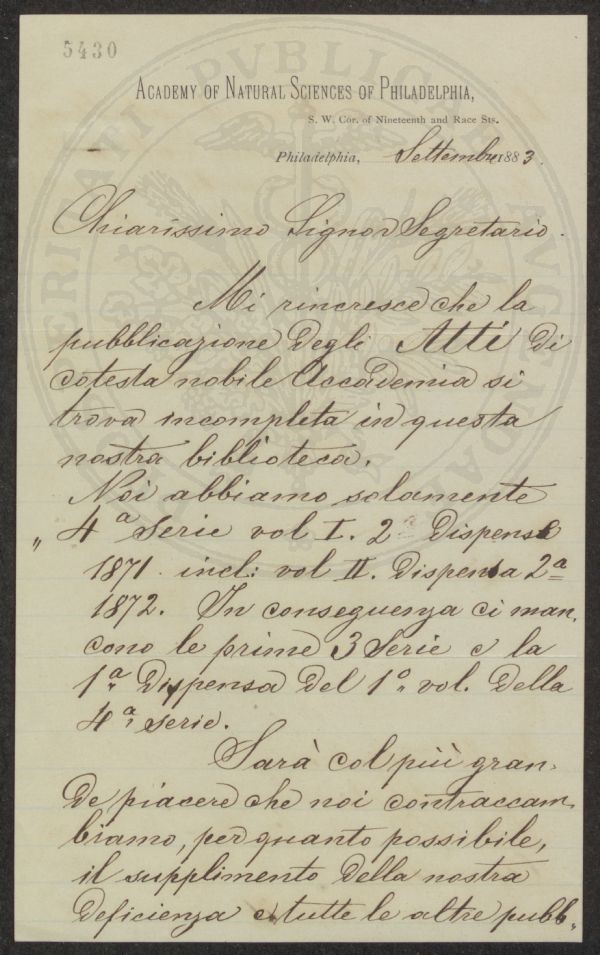 5430
ACADEMY OF NATURAL SCIENCES OF PHILADELPHIA,
S. W. Cor. of Nineteenth and Race Sts.
Philadelphia, Settembre 1883.
Chiarissimo Signor Segretario.
Mi rincresce che la
pubblicazione degli Atti di
cotesta nobile Accademia si
trova incompleta in questa
nostra biblioteca.
Noi abbiamo solamente
„ 4ª Serie vol I. 2ª Dispense
1871. incl: vol II. Dispensa 2ª
1872. In conseguenza ci man,
cono le prime 3 Serie e la
1ª Dispensa del 1º vol. della
4ª Serie.
Sarà col più gran,
de piacere che noi contraccam,
biamo, per quanto possibile,
il supplimento della nostra
deficienza e tutte le altre pubb„